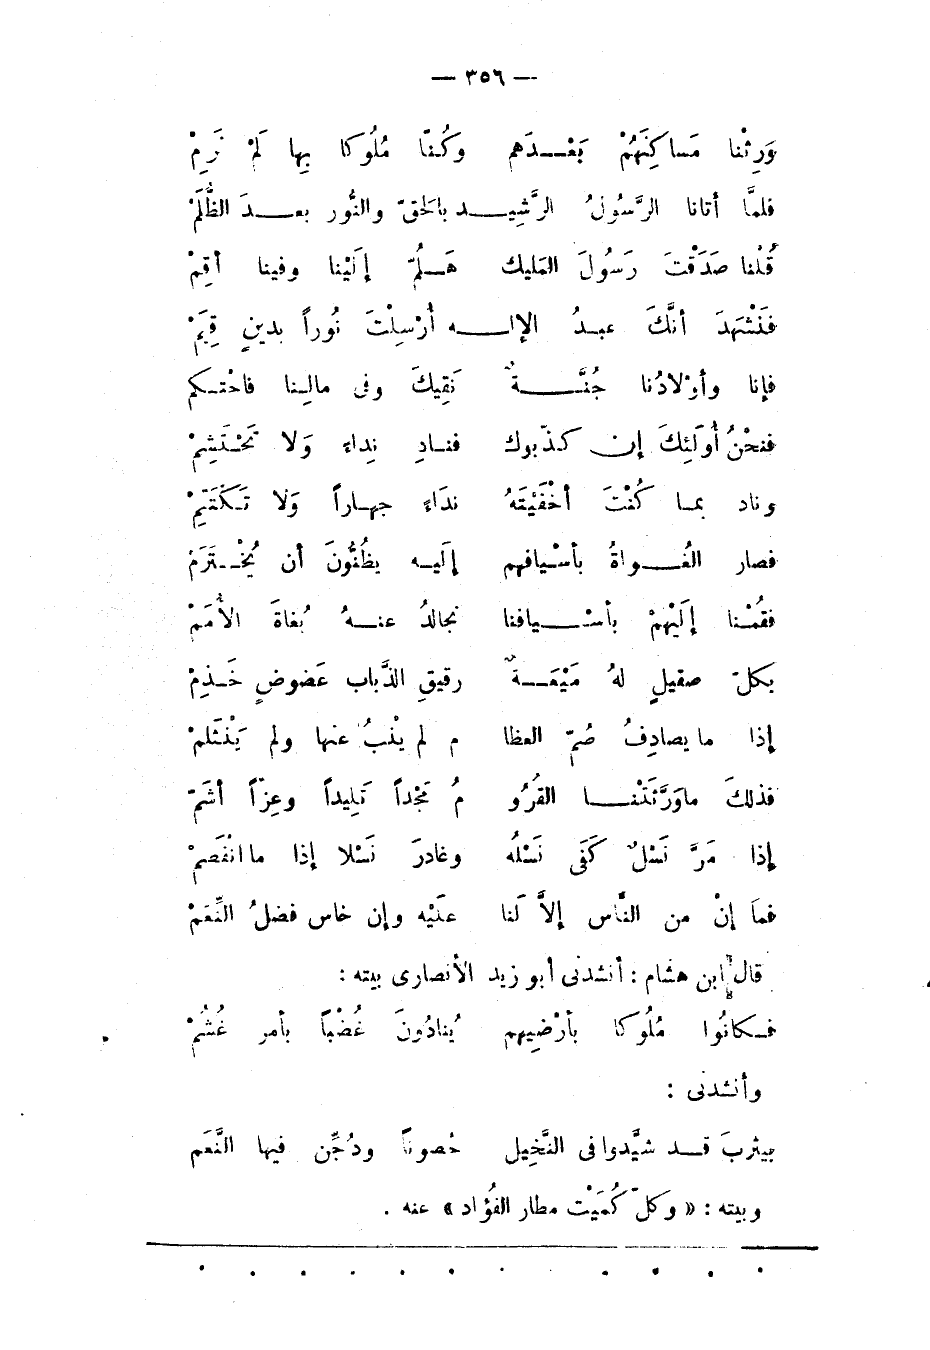 — ٣٥٦ —
وَرِثْنا مَساكِنَهُمْ بَعْـدَهم وَكُـنَّا مُلُوكا بِها لَمْ نَرِمْ
فلمَّا أتانا الرَّسُولُ الرَّشِيـد بالحَقّ والنُّور بعـدَ الظُّلَمْ
قُلْنا صَدَقْتَ رَسُولَ المَليك هَـلُمّ إلَيْنا وفينا أقِمْ
فَنَشْهَدَ أنَّكَ عبدُ الإلـه أُرْسِلْتَ نُوراً بدينٍ قِيَمْ
فإنا وأوْلادُنا جُنَّـةٌ نَقِيكَ وفى مالِنا فاحْتـكم
فنحْنُ أُولَئِكَ إن كذّبوك فنـادِ نِداءً وَلا تَحْـتَشِمْ
وناد بمـا كُنْتَ أخْفَيْتَهُ نِدَاءً جهـاراً وَلا تَـكْتَتِمْ
فصار الغُـواةُ بأسْـيافهم إلَيـه يظُنُّونَ أن يُخْـتَرَمْ
فقُمْـنا إلَيْهِمْ بأسْـيافنا نجالدُ عنـهُ بُغاةَ الأُمَمْ
بكلّ صقيلٍ لهُ مَيْعَـةٌ رقيقِ الذُّباب عَضوضٍ خَـذِمْ
إذا ما يصادِفُ صُمّ العظا م لم يَنْبُ عنها ولم يَنْثَلمْ
فذلكَ ماوَرَّثَتْنـا القرُو مُ مَجْداً تَلِيداً وعِزّاً أشَمّ
إذا مَرَّ نَسْلٌ كَفَى نَسْلُه وغادرَ نَسْلا إذا ما انْفَصمْ
فمَا إنْ من النَّاس إلاَّ لَنا علَيْه وإن خاس فضلُ النِّعَمْ
قال ابن هشام : أنشدنى أبو زيد الأنصارى بيته :
فـكانُوا مُلُوكا بأرْضِيهِم يُنادُونَ غُضْباً بأمر غُشُمْ
وأنشدنى :
بيثربَ قـد شيَّدوا فى النَّخِيل حُصوناً ودُجِّن فيها النَّعَم
وبيته : « وكلّ كُمَيْت مطار الفُؤاد » عنه .